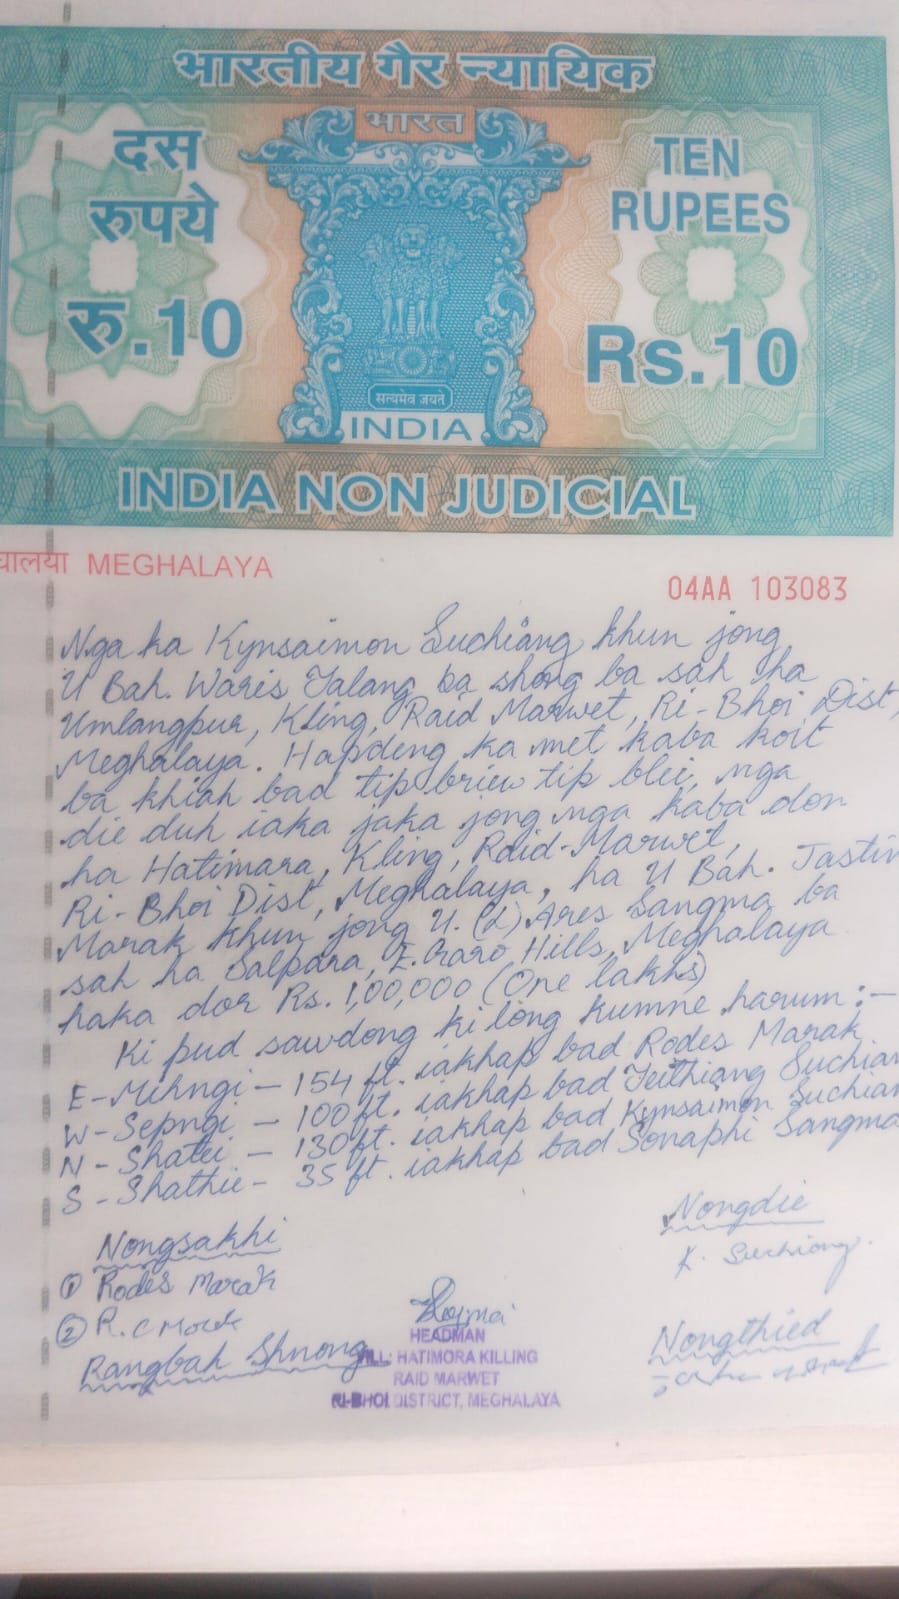 भारतीय गैर न्यायिक
भारत
दस
रुपये
रु.10
TEN
RUPEES
Rs.10
सत्यमेव जयते
INDIA
INDIA NON JUDICIAL
घालया MEGHALAYA
04AA 103083
Nga ka Kynsaimon Suchiang khun jong
U Bah. Waris Jalang ba shong ba sah ha
Umlangpur, Kling, Raid Marwet, Ri-Bhoi Dist,
Meghalaya. Hapdeng ka met kaba koit
ba khiah bad tip briew tip blei, nga
die duh iaka jaka jong nga kaba don
ha Hatimara, Kling, Raid-Marwet,
Ri-Bhoi Dist, Meghalaya, ha U Bah. Jastin
Marak khun jong U. (L) Ares Sangma ba
sah ha Salpara, E. Garo Hills, Meghalaya
haka dor Rs. 1,00,000 (One lakhs)
Ki pud sawdong ki long kumne harum :-
E-Mihngi - 154 ft. iakhap bad Rodes Marak
W-Sepngi - 100 ft. iakhap bad Suchian
N-Shatei - 130 ft. iakhap bad Kynsaimon Suchian
S-Shathie- 35 ft. iakhap bad Sonaphi Sangma
Nongsakhi
① Rodes Marak
② R. C
Rangbah Shnong
HEADMAN
VILL: HATIMORA KILLING
RAID MARWET
RI-BHOI DISTRICT, MEGHALAYA
Nongdie
K. Suchiang.
Nongthied